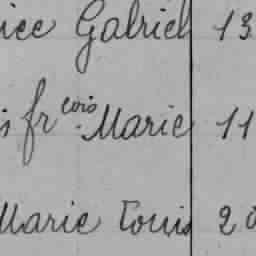 Gabriel 13
fr cois Marie 11
Marie Louis 20